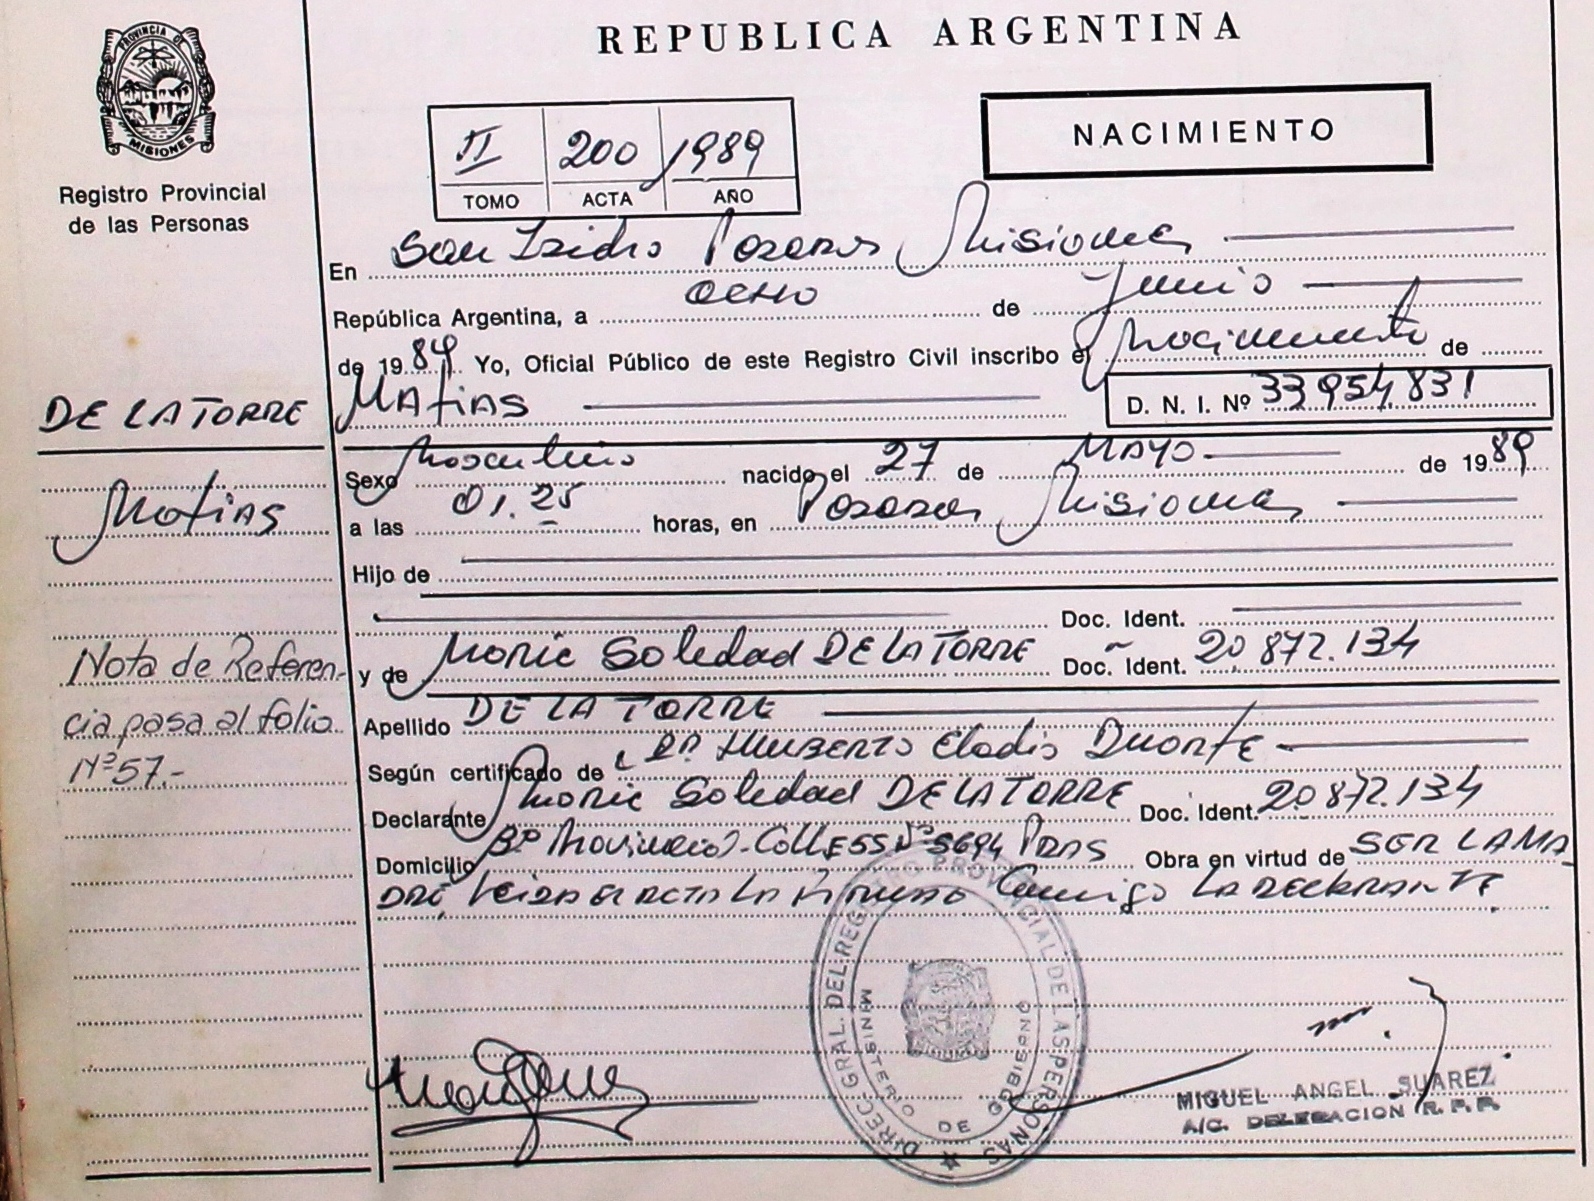 PROVINCIA DE
MISIONES
Registro Provincial
de las Personas
REPUBLICA ARGENTINA
II 200 1989
TOMO ACTA AÑO
NACIMIENTO
En San Isidro Posadas Misiones
República Argentina, a OCHO de Junio
de 1989 Yo, Oficial Público de este Registro Civil inscribo el Nacimiento de
DE LA TORRE MATIAS D. N. I. Nº 33 954,831
Sexo Masculino nacido el 27 de MAYO de 1989
Matias a las 01.25 horas, en Posadas Misiones
Hijo de
Doc. Ident.
Nota de Referen- y de Maria Soledad DE LA TORRE Doc. Ident. 20.872.134
cia pasa al folio Apellido DE LA TORRE
Nº 57.- Según certificado de Dr. HUMBERTO Eladio Duarte
Declarante Maria Soledad DE LA TORRE Doc. Ident. 20872.134
Domicilio Bº Provincial-CALLE 55 Nº 5694 PDAS Obra en virtud de SER LA MA
DRE, Leida el ACTA LA FIRMAO Conmigo LA DECLARANTE.
DIREC. GRAL. DEL REGISTRO PROVINCIAL DE LAS PERSONAS
MINISTERIO DE GOBIERNO
MIGUEL ANGEL SUAREZ
A/C. DELEGACION R. P. P.